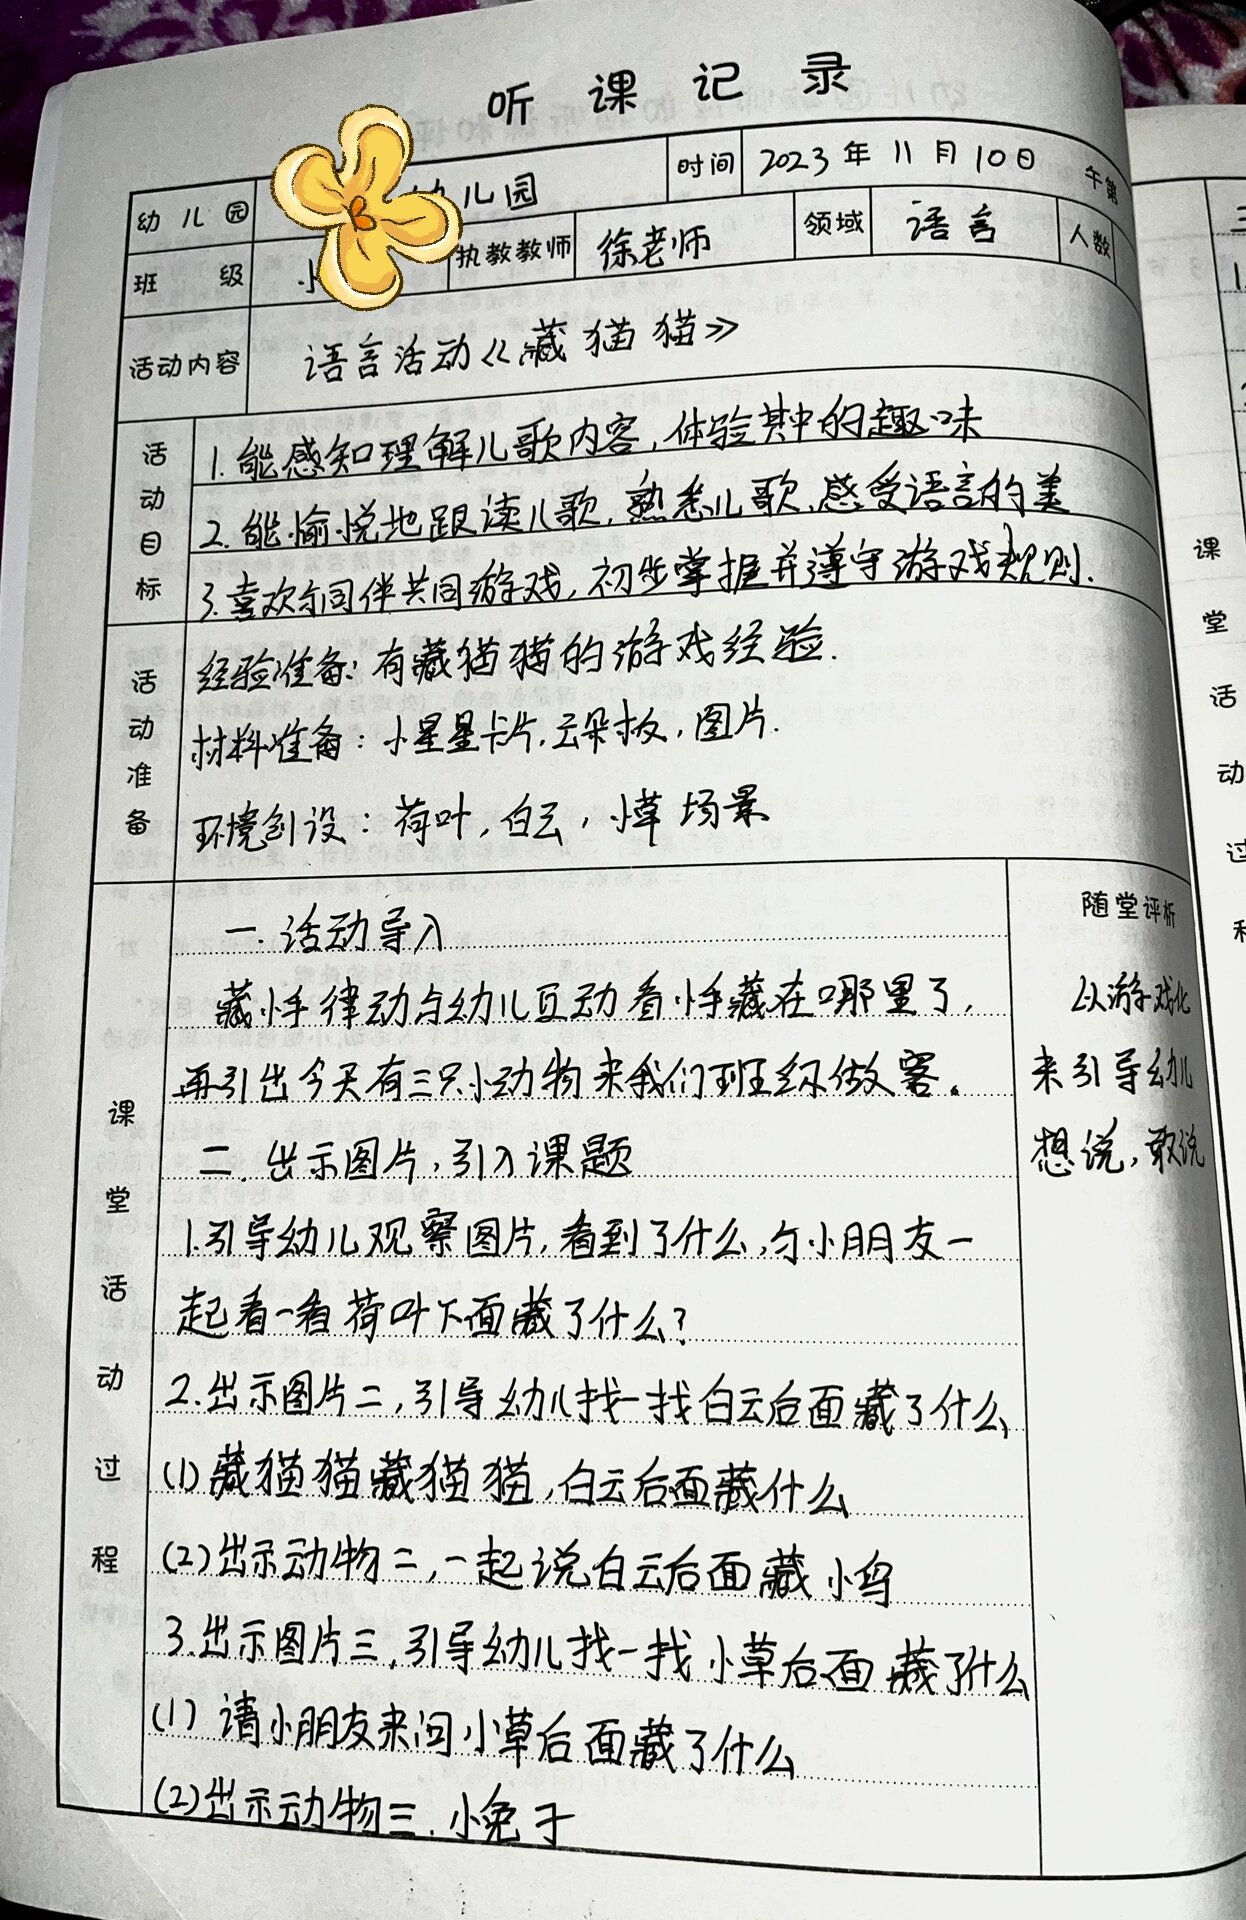 听课记录
幼儿园 幼儿园 时间 2023年11月10日 午第
班级 小 执教教师 徐老师 领域 语言 人数
活动内容 语言活动《藏猫猫》
活动目标
1.能感知理解儿歌内容,体验其中的趣味
2.能愉悦地跟读儿歌,熟悉儿歌,感受语言的美
3.喜欢与同伴共同游戏,初步掌握并遵守游戏规则.
活动准备
经验准备:有藏猫猫的游戏经验.
材料准备:小星星卡片,云朵板,图片.
环境创设:荷叶,白云,小草场景
课堂活动过程
一.活动导入
藏小手律动与幼儿互动看小手藏在哪里了,
再引出今天有三只小动物来我们班级做客。
二.出示图片,引入课题
1.引导幼儿观察图片,看到了什么,与小朋友一
起看一看荷叶下面藏了什么?
2.出示图片二,引导幼儿找一找白云后面藏了什么
(1)藏猫猫藏猫猫,白云后面藏什么
(2)出示动物二,一起说白云后面藏小鸟
3.出示图片三,引导幼儿找一找小草后面藏了什么
(1)请小朋友来问小草后面藏了什么
(2)出示动物三.小兔子
随堂评析
以游戏化
来引导幼儿
想说,敢说
课堂活动过程